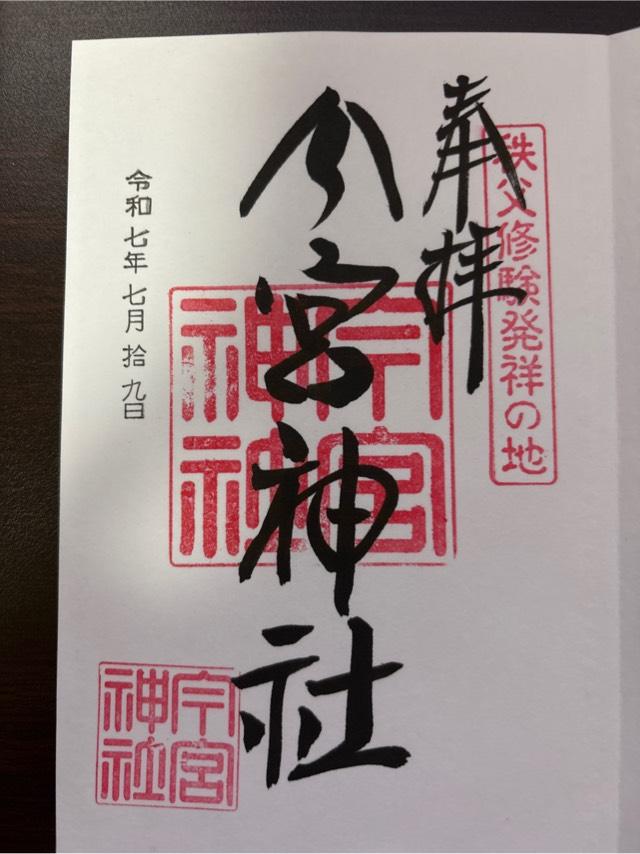 奉拝
秩父修験発祥の地
今宮神社
今宮
神社
令和七年七月拾九日
今宮
神社